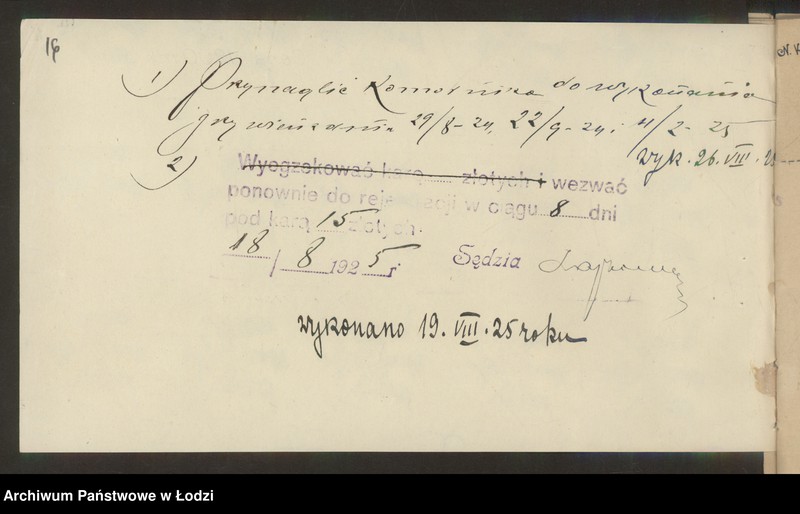 16
1) Przynaglić Komornika do wykonania
grzywień z dnia 29/8-24, 22/9-24 i 11/2-25
wyk. 26.VIII.25
2) Wyegzekować karę złotych i wezwać
ponownie do rejestracji w ciągu 8 dni
pod karą 15 złotych.
18/8 1925 r
Sędzia
wykonano 19.VIII.25 roku
N.
Archiwum Państwowe w Łodzi